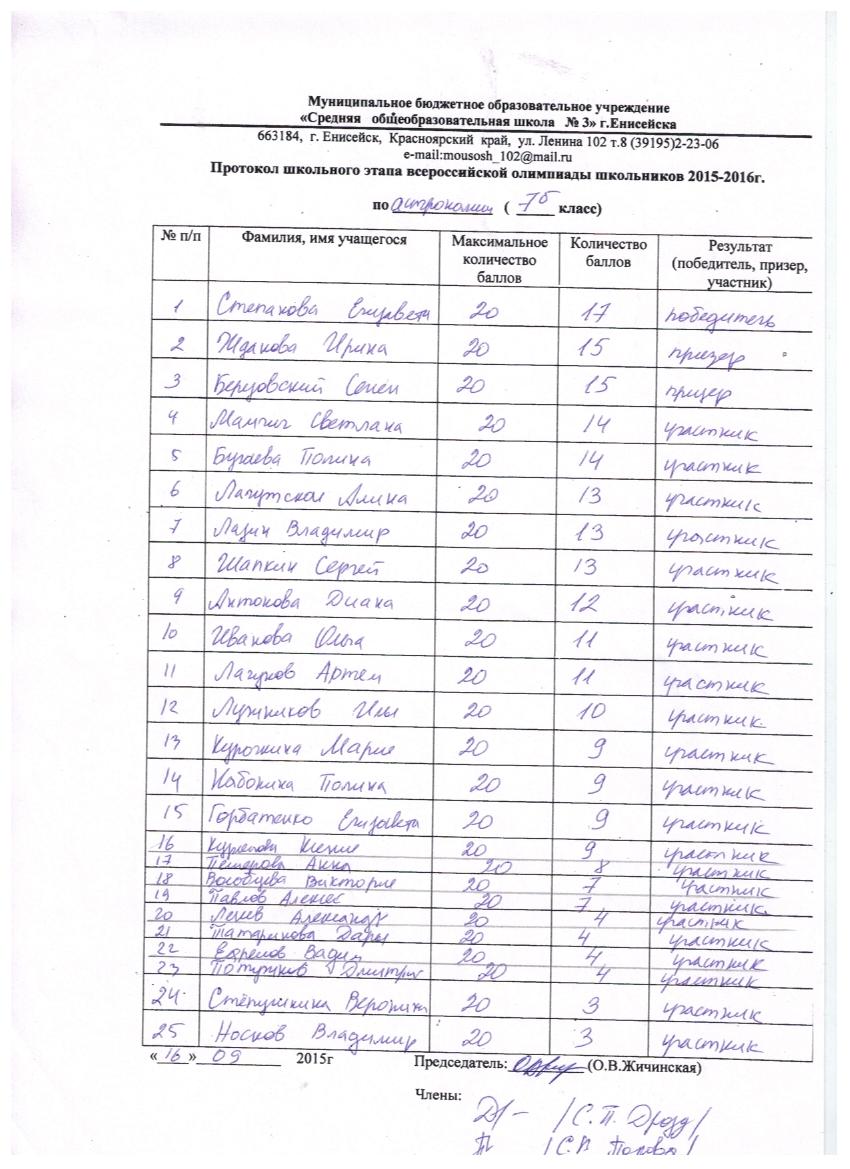 Муниципальное бюджетное образовательное учреждение
«Средняя общеобразовательная школа № 3» г.Енисейска
663184, г. Енисейск, Красноярский край, ул. Ленина 102 т.8 (39195)2-23-06
e-mail:mousosh_102@mail.ru
Протокол школьного этапа всероссийской олимпиады школьников 2015-2016г.
по астрономии ( 7б класс)
№ п/п Фамилия, имя учащегося Максимальное количество баллов Количество баллов Результат (победитель, призер, участник)
1 Степанова Елизавета 20 17 победитель
2 Жданова Ирина 20 15 призер
3 Березовский Семён 20 15 призер
4 Светлана 20 14 участник
5 Бугаева Полина 20 14 участник
6 Алина 20 13 участник
7 Лазин Владимир 20 13 участник
8 Шапкин Сергей 20 13 участник
9 Антонова Диана 20 12 участник
10 Иванова Ольга 20 11 участник
11 Лагунов Артем 20 11 участник
12 Лужников Илья 20 10 участник
13 Мария 20 9 участник
14 Набокина Полина 20 9 участник
15 Горбатенко Елизавета 20 9 участник
16 Ксения 20 9 участник
17 Анна 20 8 участник
18 Виктория 20 7 участник
19 Павлов Алексей 20 7 участник
20 Александр 20 4 участник
21 Татаринова Дарья 20 4 участник
22 Ефремов Вадим 20 4 участник
23 Дмитрий 20 4 участник
24 Степушкина Вероника 20 3 участник
25 Носков Владимир 20 3 участник
«16» 09 2015г Председатель: (О.В.Жичинская)
Члены:
/С.П. Дрозд/
/С.В. Попова/